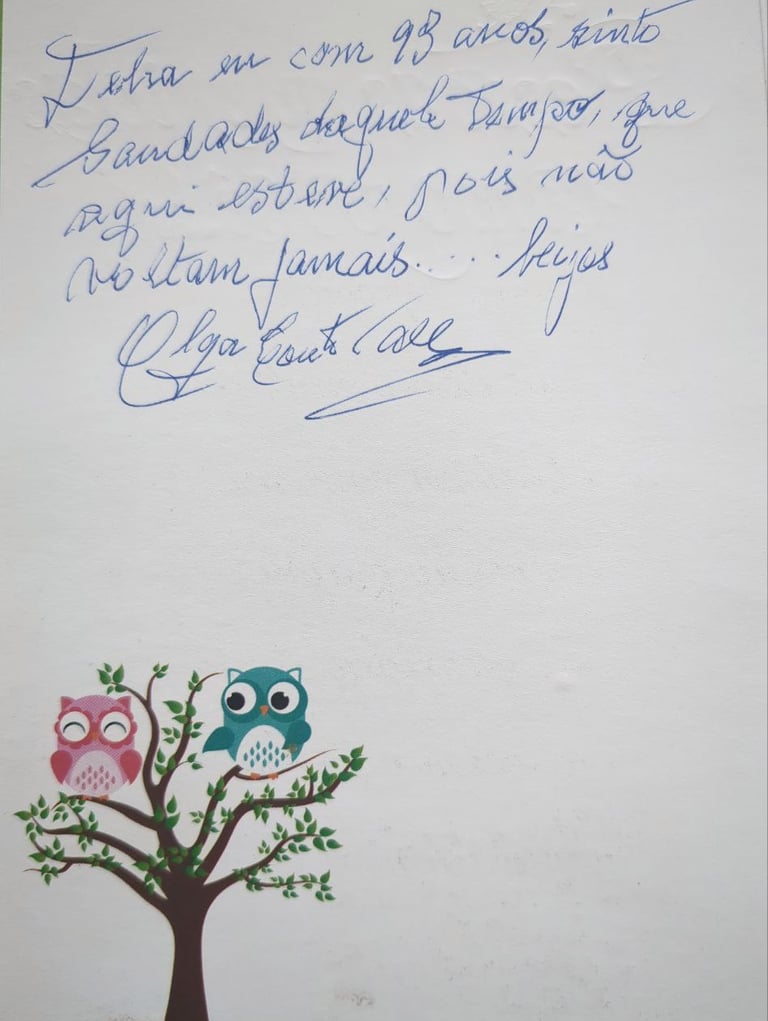 eu com 93 anos, sinto
Saudades daquele Tempo, que
aqui esteve, pois não
voltam jamais..... beijos
Olga